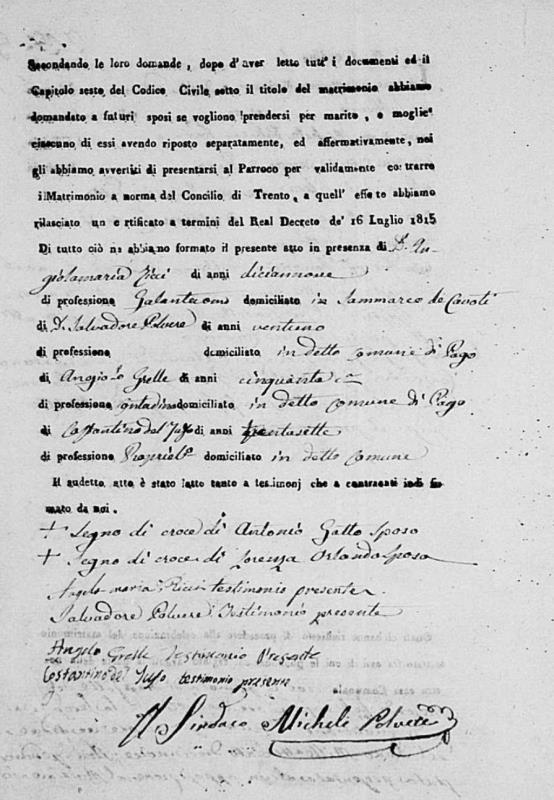 Secondando le loro domande, dopo d'aver letto tutt'i documenti ed il
Capitolo sesto del Codice Civile sotto il titolo del matrimonio abbiamo
domandato a futuri sposi se vogliono prendersi per marito, e moglie
ciascuno di essi avendo riposto separatamente, ed affermativamente, noi
gli abbiamo avvertiti di presentarsi al Parroco per validamente contrarre
il Matrimonio a norma del Concilio di Trento, a quell' effetto abbiamo
rilasciato un certificato a termini del Real Decreto de' 16 Luglio 1815
Di tutto ciò ne abbiamo formato il presente atto in presenza di D. An-
giolamaria Ricci di anni diciannove
di professione Galantuomo domiciliato in Sammarco de Cavoti
di D. Salvadore Polvere di anni ventuno
di professione domiciliato in detto comune di Pago
di Angiolo Grelle di anni cinquanta
di professione contadino domiciliato in detto comune di Pago
di Costantino del Jufo di anni trentasette
di professione Proprieto domiciliato in detto comune
Il sudetto atto è stato letto tanto a testimonj che a contraenti indi fir
mato da noi.
+ Segno di croce di Antonio Gatto sposo
+ Segno di croce di Lorenza Orlando sposa
Angelo maria Ricci testimonio presente
Salvadore Polvere Testimonio presente
Angelo Grelle Testimonio Presente
Costantino del Jufo testimonio presente
Il Sindaco Michele Polvere